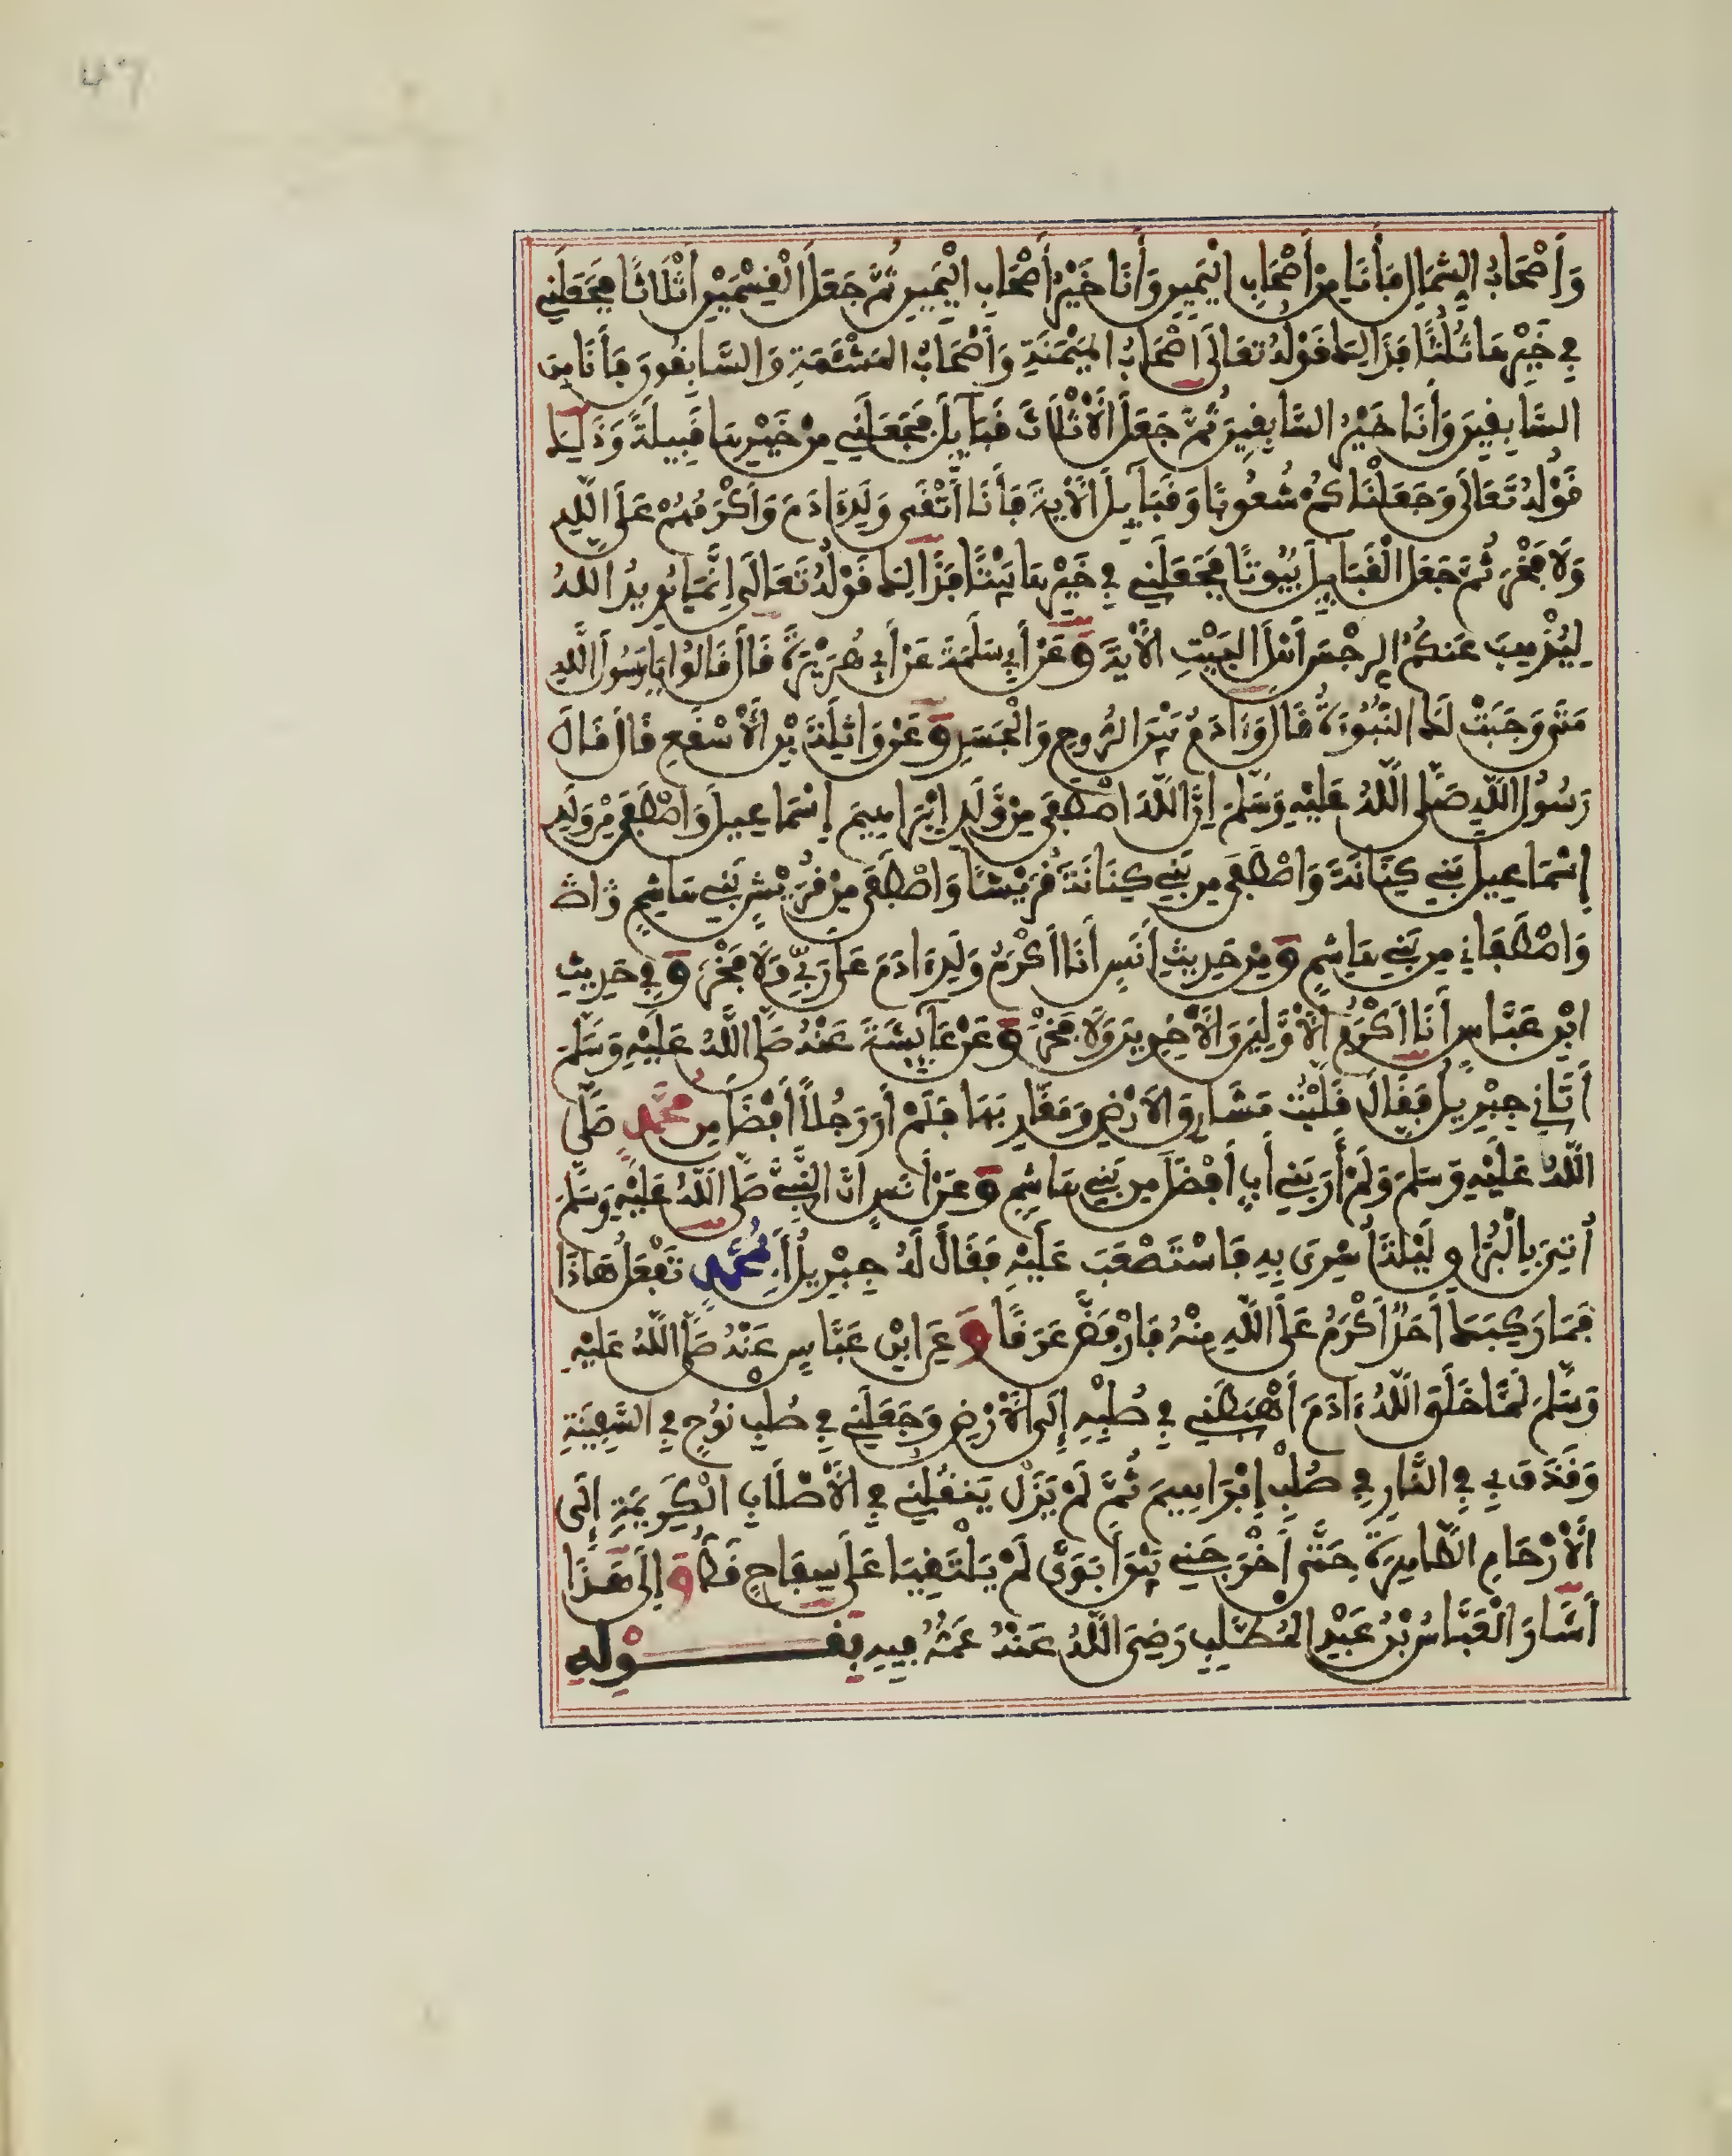 47
وَأَصْحَابُ الشِّمَالِ فَأَنَا مِنْ أَصْحَابِ الْيَمِينِ وَأَنَا خَيْرُ أَصْحَابِ الْيَمِينِ ثُمَّ جَعَلَ الْقِسْمَيْنِ أَثْلَاثًا فَجَعَلَنِي
فِي خَيْرِهَا ثُلُثًا فَذَالِكَ قَوْلُهُ تَعَالَى أَصْحَابُ الْمَيْمَنَةِ وَأَصْحَابُ الْمَشْئَمَةِ وَالسَّابِقُونَ فَأَنَا مِنَ
السَّابِقِينَ وَأَنَا خَيْرُ السَّابِقِينَ ثُمَّ جَعَلَ الْأَثْلَاثَ قَبَآئِلَ فَجَعَلَنِي مِنْ خَيْرِهَا قَبِيلَةً وَذَلِكَ
قَوْلُهُ تَعَالَى وَجَعَلْنَاكُمْ شُعُوبًا وَقَبَآئِلَ الْآيَةَ فَأَنَا أَتْقَى وَلَدِ ءَادَمَ وَأَكْرَمُهُمْ عَلَى اللَّهِ
وَلَا فَخْرَ ثُمَّ جَعَلَ الْقَبَآئِلَ بُيُوتًا فَجَعَلَنِي فِي خَيْرِهَا بَيْتًا فَذَالِكَ قَوْلُهُ تَعَالَى إِنَّمَا يُرِيدُ اللَّهُ
لِيُذْهِبَ عَنكُمُ الرِّجْسَ أَهْلَ الْبَيْتِ الْآيَةَ وَعَنْ أَبِي سَلَمَةَ عَنْ أَبِي هُرَيْرَةَ قَالَ قَالُوا يَا رَسُولَ اللَّهِ
مَتَى وَجَبَتْ لَكَ النُّبُوءَةُ قَالَ وَءَادَمُ بَيْنَ الرُّوحِ وَالْجَسَدِ وَعَنْ وَاثِلَةَ بْنِ الْأَسْقَعِ قَالَ قَالَ
رَسُولُ اللَّهِ صَلَّى اللَّهُ عَلَيْهِ وَسَلَّمَ إِنَّ اللَّهَ اصْطَفَى مِنْ وَّلَدِ إِبْرَاهِيمَ إِسْمَاعِيلَ وَاصْطَفَى مِنْ وَلَدِ
إِسْمَاعِيلَ بَنِي كِنَانَةَ وَاصْطَفَى مِن بَنِي كِنَانَةَ قُرَيْشًا وَاصْطَفَى مِنْ قُرَيْشٍ بَنِي هَاشِمٍ وَاصْ
وَاصْطَفَانِي مِن بَنِي هَاشِمٍ وَمِنْ حَدِيثِ أَنَسٍ أَنَا أَكْرَمُ وَلَدِ ءَادَمَ عَلَى رَبِّي وَلَا فَخْرَ وَفِي حَدِيثِ
ابْنِ عَبَّاسٍ أَنَا أَكْرَمُ الْأَوَّلِينَ وَالْآخِرِينَ وَلَا فَخْرَ وَعَنْ عَآئِشَةَ عَنْهُ صَلَّى اللَّهُ عَلَيْهِ وَسَلَّمَ
أَتَانِي جِبْرِيلُ فَقَالَ قَلَّبْتُ مَشَارِقَ الْأَرْضِ وَمَغَارِبَهَا فَلَمْ أَرَ رَجُلًا أَفْضَلَ مِن مُحَمَّدٍ صَلَّى
اللَّهُ عَلَيْهِ وَسَلَّمَ وَلَمْ أَرَ بَنِي أَبٍ أَفْضَلَ مِن بَنِي هَاشِمٍ وَعَنْ أَنَسٍ أَنَّ النَّبِيَّ صَلَّى اللَّهُ عَلَيْهِ وَسَلَّمَ
أُتِيَ بِالْبُرَاقِ لَيْلَةَ أُسْرِيَ بِهِ فَاسْتَصْعَبَ عَلَيْهِ فَقَالَ لَهُ جِبْرِيلُ أَبِمُحَمَّدٍ تَفْعَلُ هَاذَا
فَمَا رَكِبَكَ أَحَدٌ أَكْرَمُ عَلَى اللَّهِ مِنْهُ فَارْفَضَّ عَرَقًا وَعَنِ ابْنِ عَبَّاسٍ عَنْهُ صَلَّى اللَّهُ عَلَيْهِ
وَسَلَّمَ لَمَّا خَلَقَ اللَّهُ ءَادَمَ أَهْبَطَنِي فِي صُلْبِهِ إِلَى الْأَرْضِ وَجَعَلَنِي فِي صُلْبِ نُوحٍ فِي السَّفِينَةِ
وَقَذَفَ بِي فِي النَّارِ فِي صُلْبِ إِبْرَاهِيمَ ثُمَّ لَمْ يَزَلْ يَنقُلُنِي فِي الْأَصْلَابِ الْكَرِيمَةِ إِلَى
الْأَرْحَامِ الطَّاهِرَةِ حَتَّى أَخْرَجَنِي بَيْنَ أَبَوَيَّ لَمْ يَلْتَقِيَا عَلَى سِفَاحٍ قَطُّ وَإِلَى هَذَا
أَشَارَ الْعَبَّاسُ بْنُ عَبْدِ الْمُطَّلِبِ رَضِيَ اللَّهُ عَنْهُ عَمُّهُ فِيهِ بِقَوْلِهِ